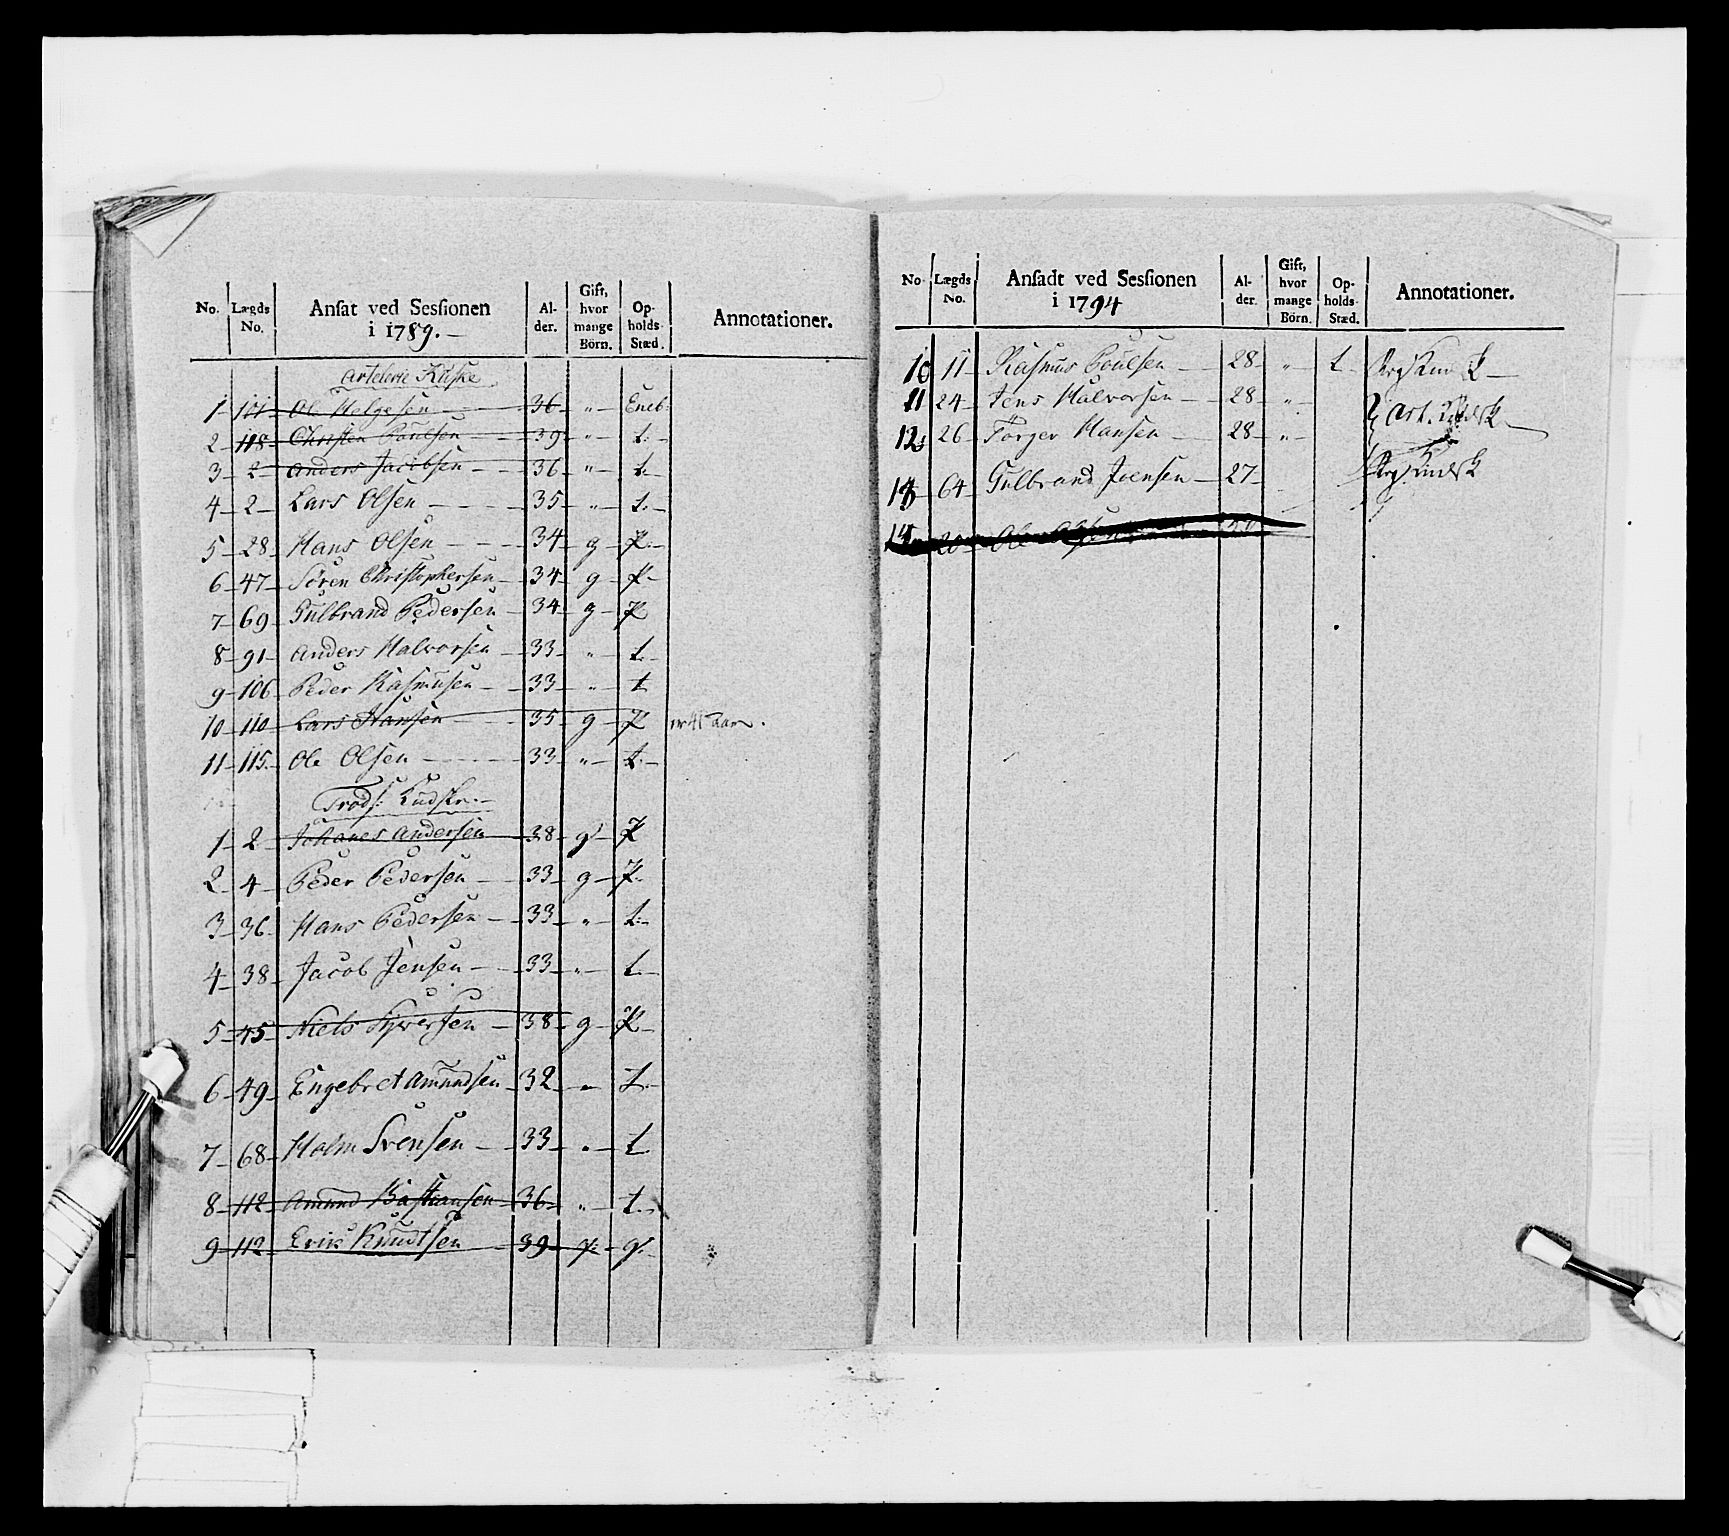 No. Lægds No. Ansat ved Sessionen i 1789. Al-der. Gift, hvor mange Börn. Op-holds-Stæd. Annotationer.
Artelerie Kuske
1 101 Ole Helgesen 36 " Eneb:
2 118 Christen Poulsen 39 " L:
3 2 Anders Jacobsen 36 " L.
4 2 Lars Olsen 35 " L.
5 28 Hans Olsen 34 g P.
6 47 Sören Christophersen 34 g P
7 69 Gulbrand Pedersen 34 g P
8 91 Anders Halvorsen 33 " L.
9 106 Peder Rasmusen 33 " L
10 110 Lars Hansen 35 g P er 41 Aar.
11 115. Ole Olsen 33 " L.
Trods: Kudske.
1 2 Johanes Andersen 38 g P
2 4 Peder Pedersen 33 g P.
3 36 Hans Pedersen 33 " L:
4 38 Jacob Jensen 33 " L.
5 45 Niels Syversen 38 g P
6 49 Engebret Amundsen 32 " L.
7 68 Holm Svensen 33 " L
8 112 Amund Bastiansen 36 " L.
9 112 Erik Knudtsen 39 g:
No. Lægds No. Ansadt ved Sessionen i 1794 Al-der. Gift, hvor mange Börn. Op-holds-Stæd. Annotationer.
10 11 Rasmus Poulsen 28 " L
11 24 Jens Halvorsen 28 " Art.
12 26 Torger Hansen 28 "
13 64 Gulbrand Joensen 27
14 20 Ole